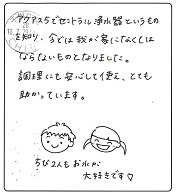 アクアス5でセントラル浄水器というもの
を知り、今では我が家になくては
ならないものとなりました。
調理にも安心して使え、とても
助かっています。
ちび2人もお水が
大好きです♡